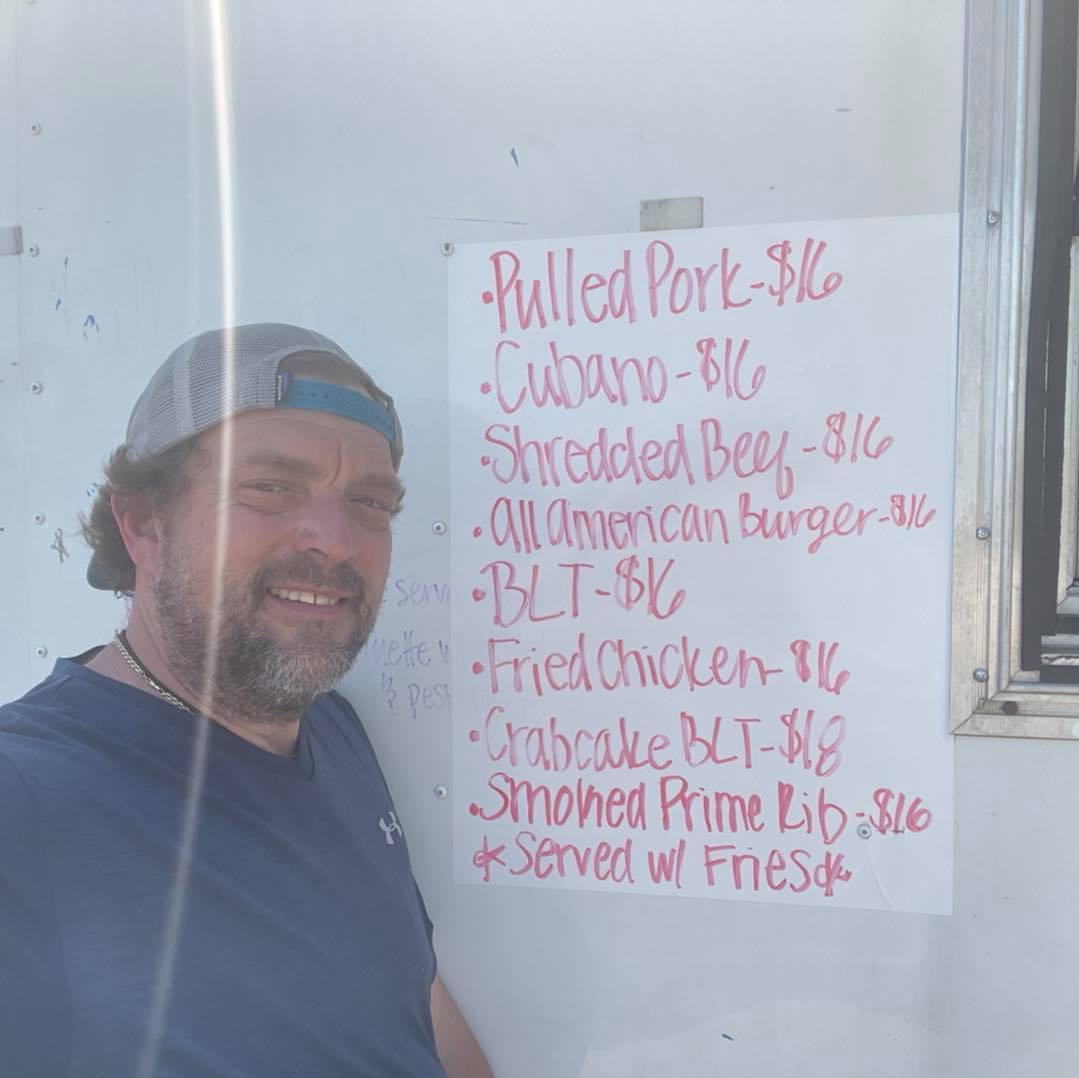 •Pulled Pork-$16
•Cubano-$16
•Shredded Beef-$16
•all american burger-$16
•BLT-$16
•Fried Chicken-$16
•Crabcake BLT-$18
•Smoked Prime Rib-$16
*Served w/ Fries*